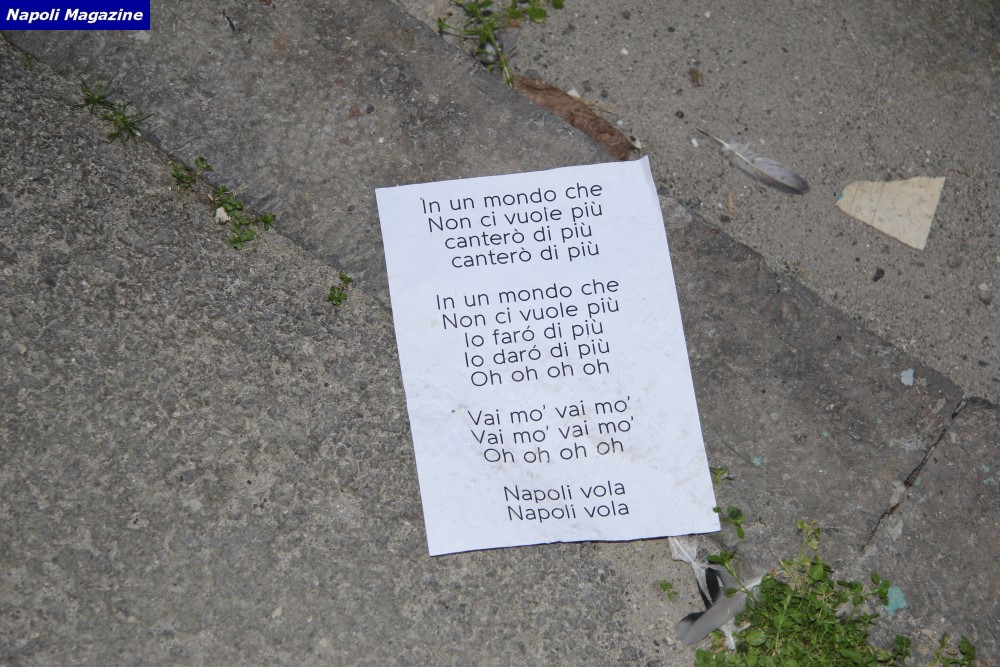 Napoli Magazine
In un mondo che
Non ci vuole più
canterò di più
canterò di più
In un mondo che
Non ci vuole più
Io faró di più
Io daró di più
Oh oh oh oh
Vai mo' vai mo'
Vai mo' vai mo'
Oh oh oh oh
Napoli vola
Napoli vola